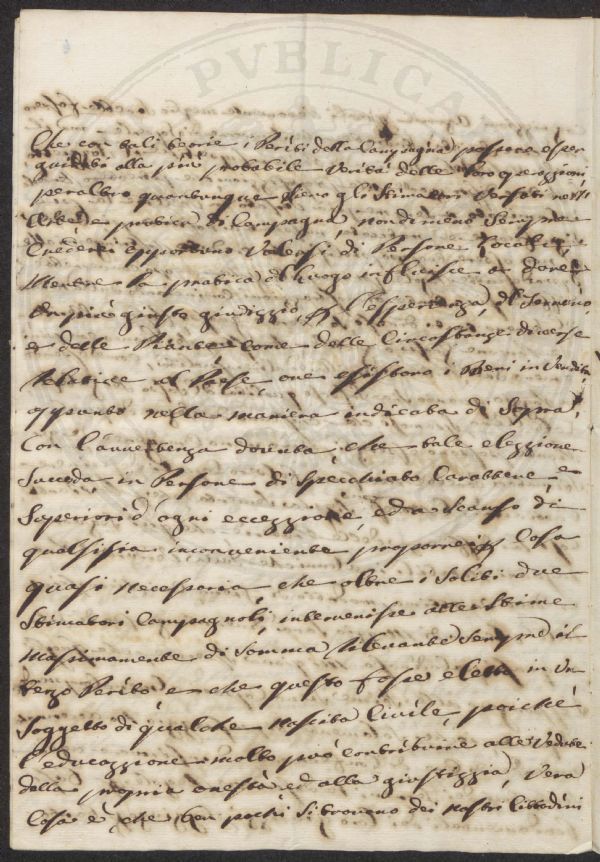 PVBLICA
Che con tali teorie i Periti della Campagna possono esser
guidati alla più probabile verità delle loro operazioni
peraltro quantunque sieno gli Stimatori versati nell'
Arte e pratica di Campagna, nondimeno sempre
Crederei opportuno valersi di Persone Locali,
mentre la pratica del luogo influisce a dare
un più giusto giudizzio l'esperienza del Terreno,
e delle Piante come delle Circostanze diverse
Relative al Paese ove esistono i Beni in Vendita
appunto nella maniera indicata di Sopra,
Con l'avvertenza dovuta che tale elezzione
Succeda in Persone di Specchiato Carattere e
Superiori d'ogni eccezzione, ed a scanso di
qualsisia inconveniente proporrei Cosa
quasi necessaria che oltre i Soliti due
Stimatori Campagnoli intervenisse alle Stime
Massimamente di Somma rilevante Sempre il
terzo Perito e che questo fosse eletto in un
Soggetto di qualche nascita Civile, poichè
l'educazzione molto può contribuire alle vedute
della propria onestà ed alla giustizzia, vera
Cosa è che ben pochi si trovano dei nostri Cittadini